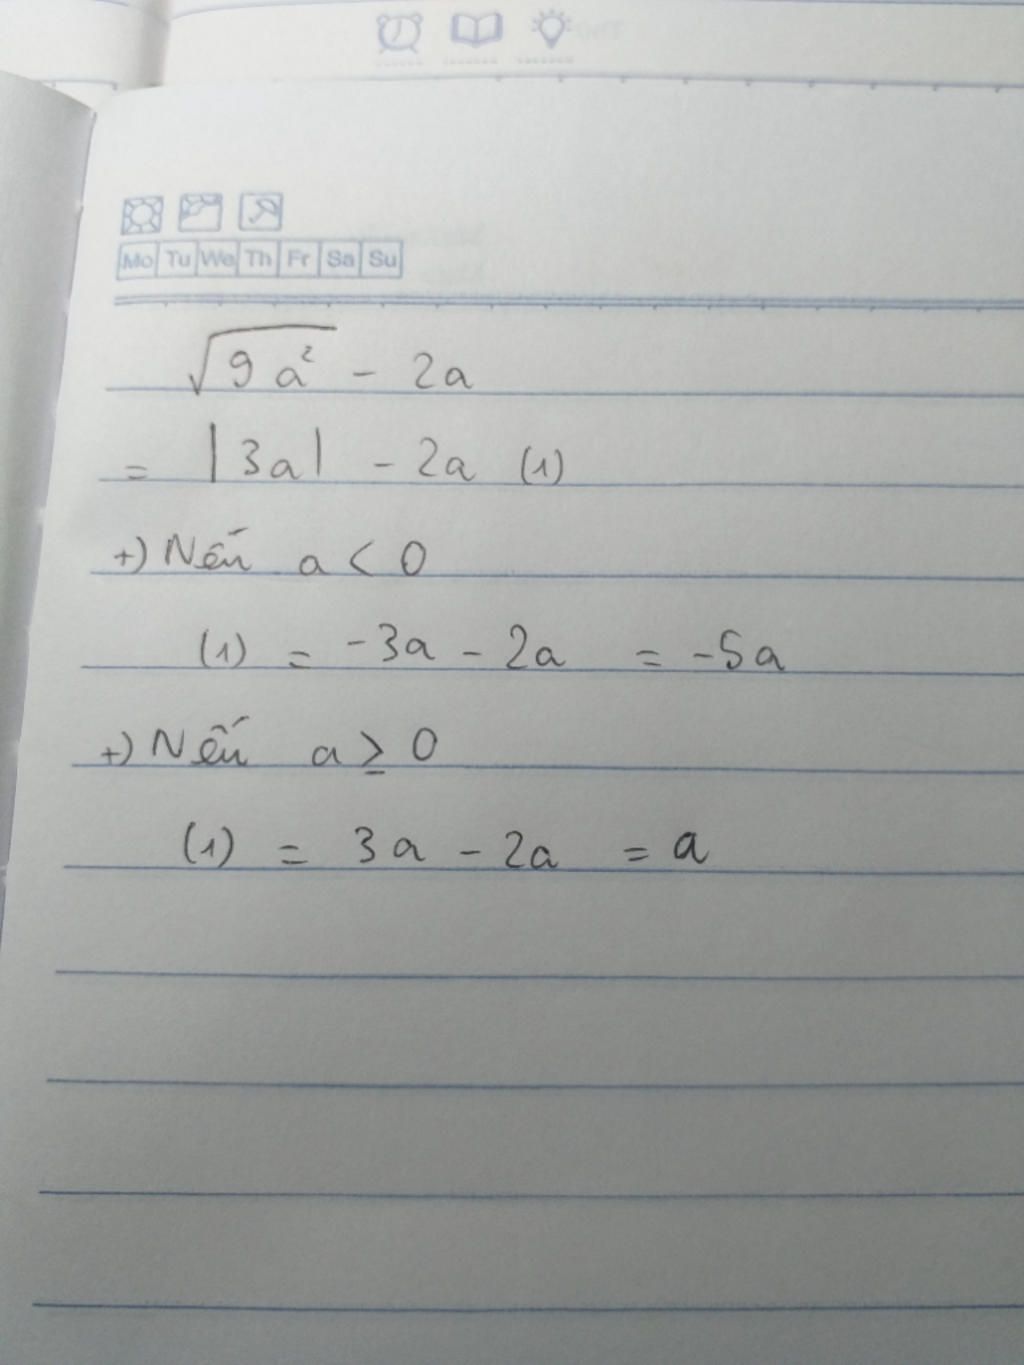 Mo Tu We Th Fr Sa Su
√9a² - 2a
= |3a| - 2a (1)
+) Nếu a < 0
(1) = -3a - 2a = -5a
+) Nếu a ≥ 0
(1) = 3a - 2a = a